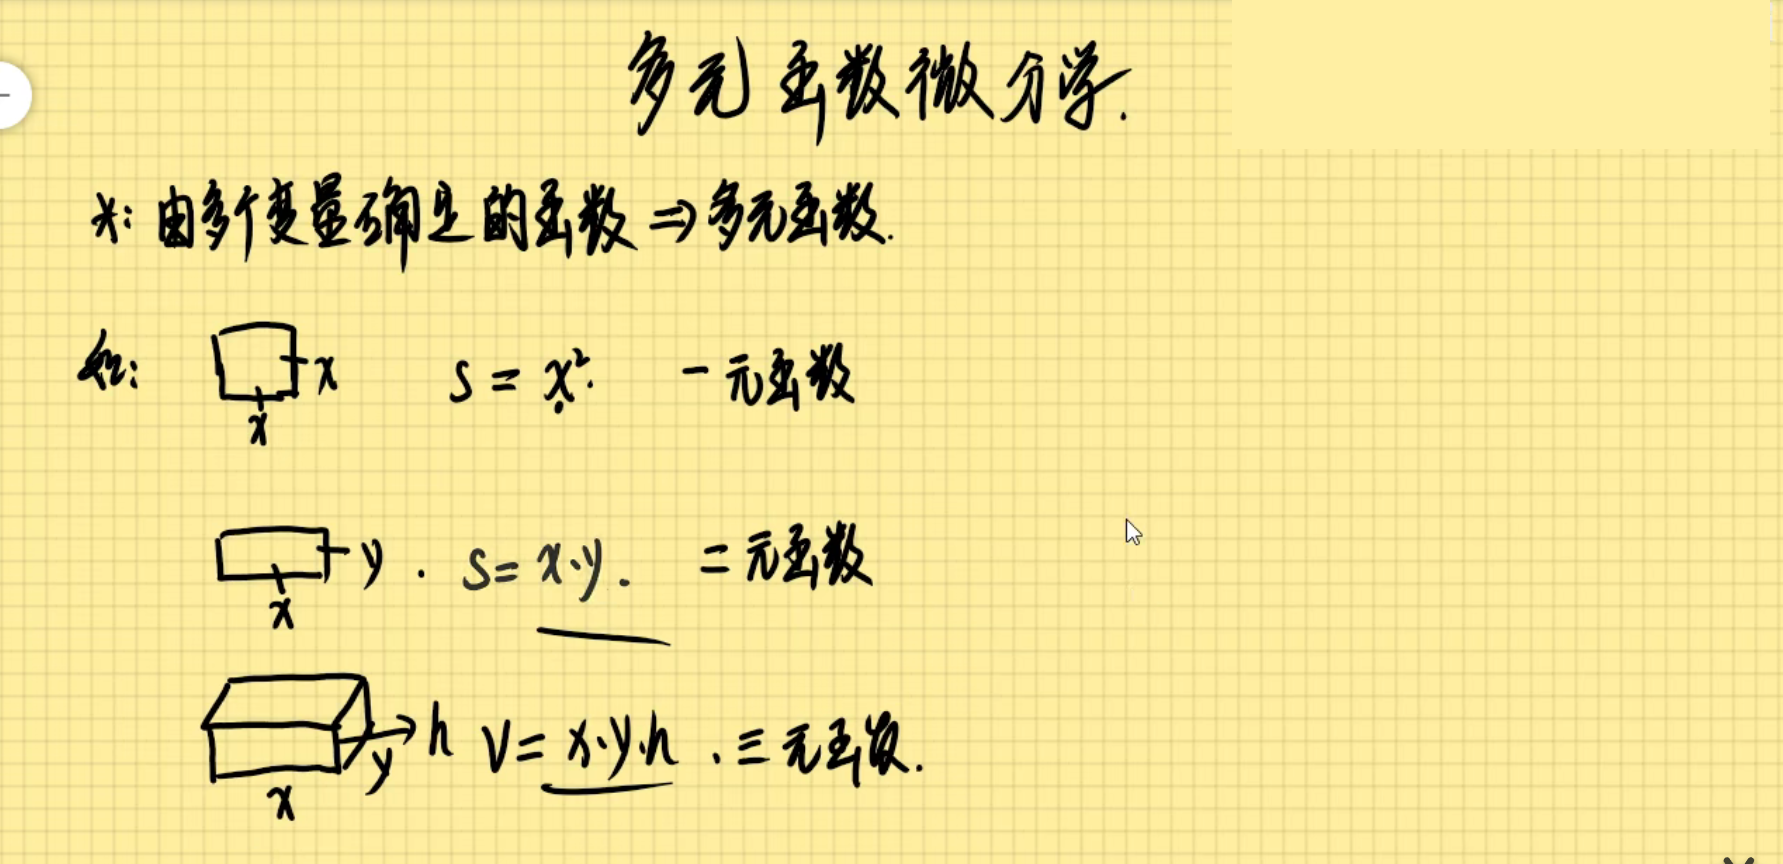 多元函数微分学.
*: 由多个变量确定的函数 ⇒ 多元函数.
如: x x S = x². 一元函数
y . x S = x·y. 二元函数
h y x V = x·y·h . 三元函数.